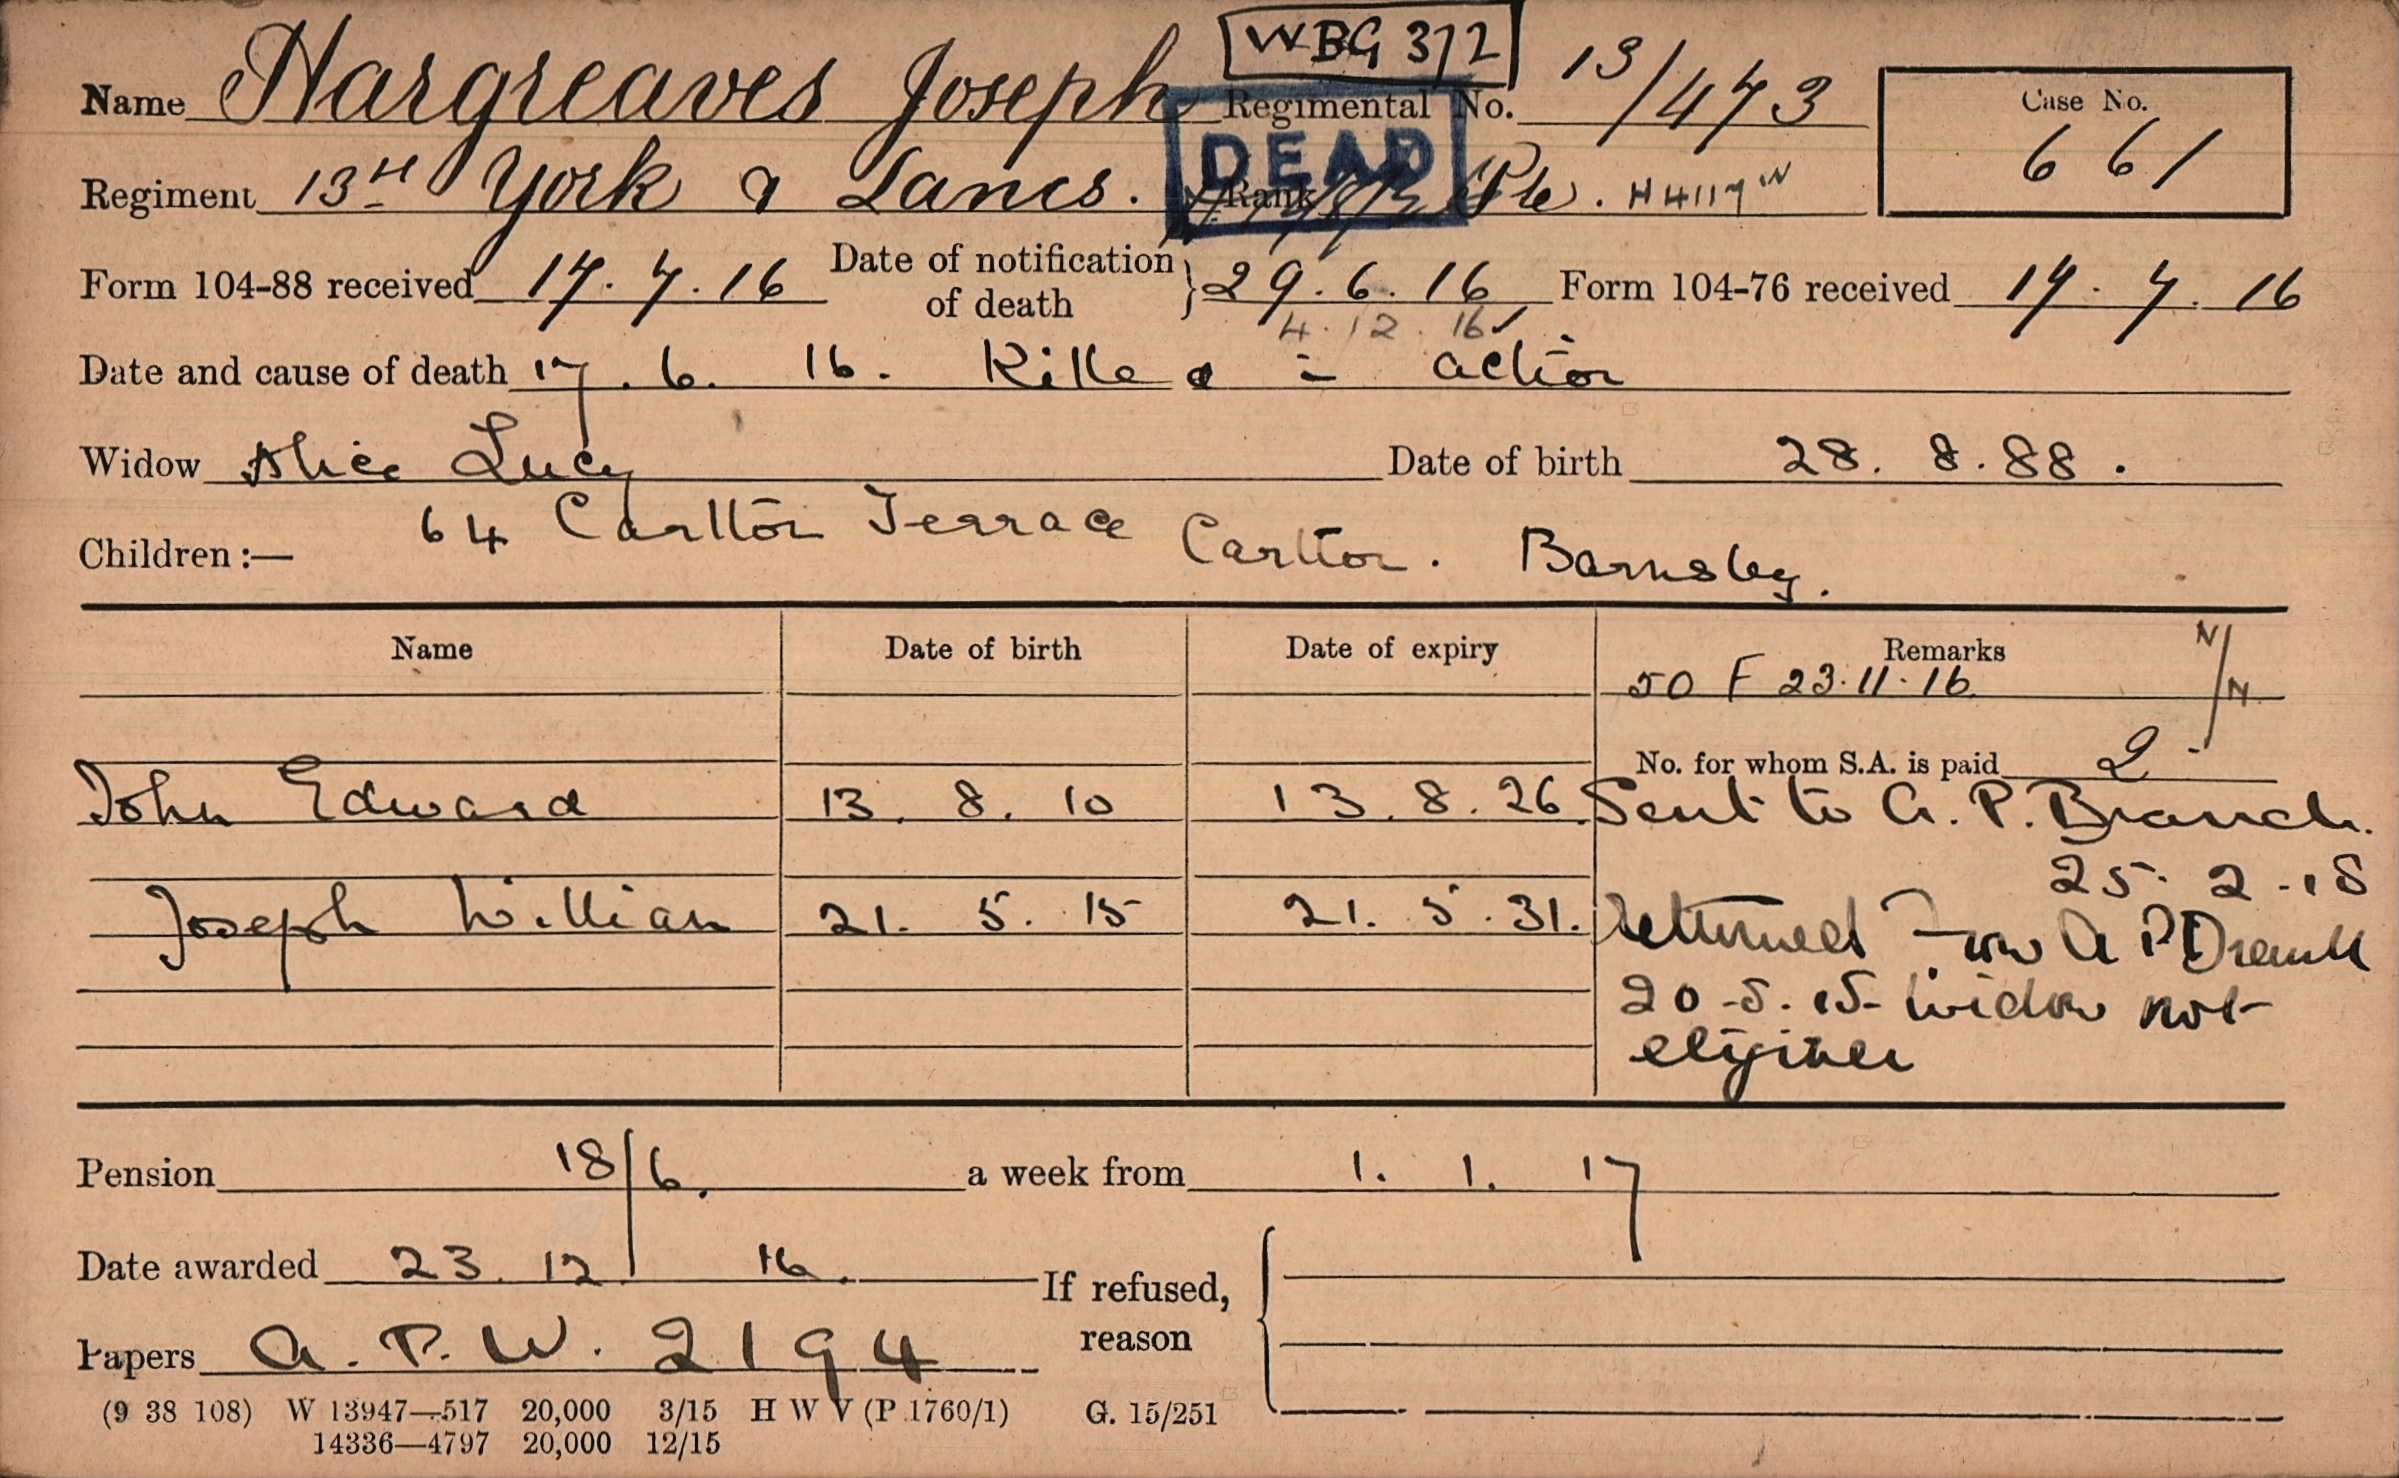 WBG 3/2
Name Hargreaves Joseph Regimental No. 13/473 Case No.
661
DEAD
Regiment 13th York & Lancs. Rank Pte. H4117 W
Form 104-88 received 17.7.16 Date of notification of death } 29.6.16 Form 104-76 received 17.7.16
4.12.16
Date and cause of death 17.6.16. Killed in action
Widow Alice Lucy Date of birth 28.8.88.
64 Carlton Terrace Carlton. Barnsley.
Children :—
Name Date of birth Date of expiry Remarks
N/N
50 F 23.11.16
No. for whom S.A. is paid 2
John Edward 13.8.10 13.8.26. Sent to A.P. Branch.
25.2.18
Joseph William 21.5.15 21.5.31. Returned from A P Branch
20-5.18 widow not
eligible
Pension 18/6. a week from 1.1.17
Date awarded 23.12.16. If refused,
reason
Papers A.P.W. 2194
(9 38 108) W 13947—517 20,000 3/15 H W V (P 1760/1) G. 15/251
14336—4797 20,000 12/15